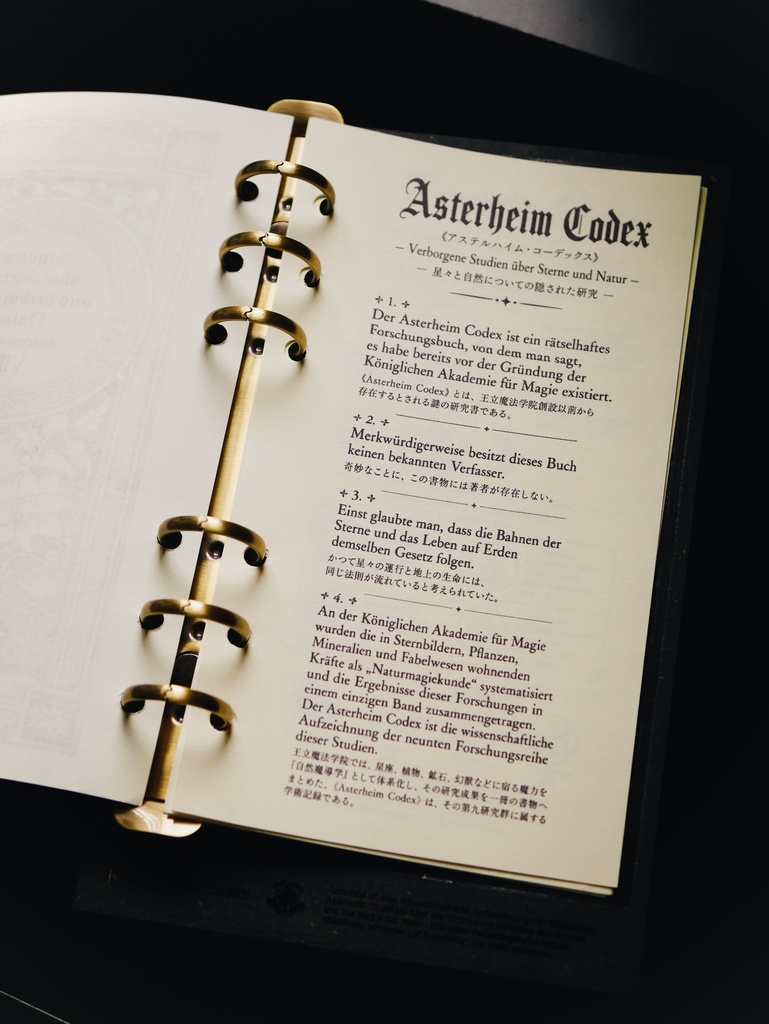 Asterheim Codex
《アステルハイム・コーデックス》
– Verborgene Studien über Sterne und Natur –
— 星々と自然についての隠された研究 —
1.
Der Asterheim Codex ist ein rätselhaftes
Forschungsbuch, von dem man sagt,
es habe bereits vor der Gründung der
Königlichen Akademie für Magie existiert.
《Asterheim Codex》とは、王立魔法学院創設以前から
存在するとされる謎の研究書である。
2.
Merkwürdigerweise besitzt dieses Buch
keinen bekannten Verfasser.
奇妙なことに、この書物には著者が存在しない。
3.
Einst glaubte man, dass die Bahnen der
Sterne und das Leben auf Erden
demselben Gesetz folgen.
かつて星々の運行と地上の生命には、
同じ法則が流れていると考えられていた。
4.
An der Königlichen Akademie für Magie
wurden die in Sternbildern, Pflanzen,
Mineralien und Fabelwesen wohnenden
Kräfte als „Naturmagiekunde“ systematisiert
und die Ergebnisse dieser Forschungen in
einem einzigen Band zusammengetragen.
Der Asterheim Codex ist die wissenschaftliche
Aufzeichnung der neunten Forschungsreihe
dieser Studien.
王立魔法学院では、星座、植物、鉱石、幻獣などに宿る魔力を
「自然魔導学」として体系化し、その研究成果を一冊の書物へ
まとめた。《Asterheim Codex》は、その第九研究群に属する
学術記録である。
Codex